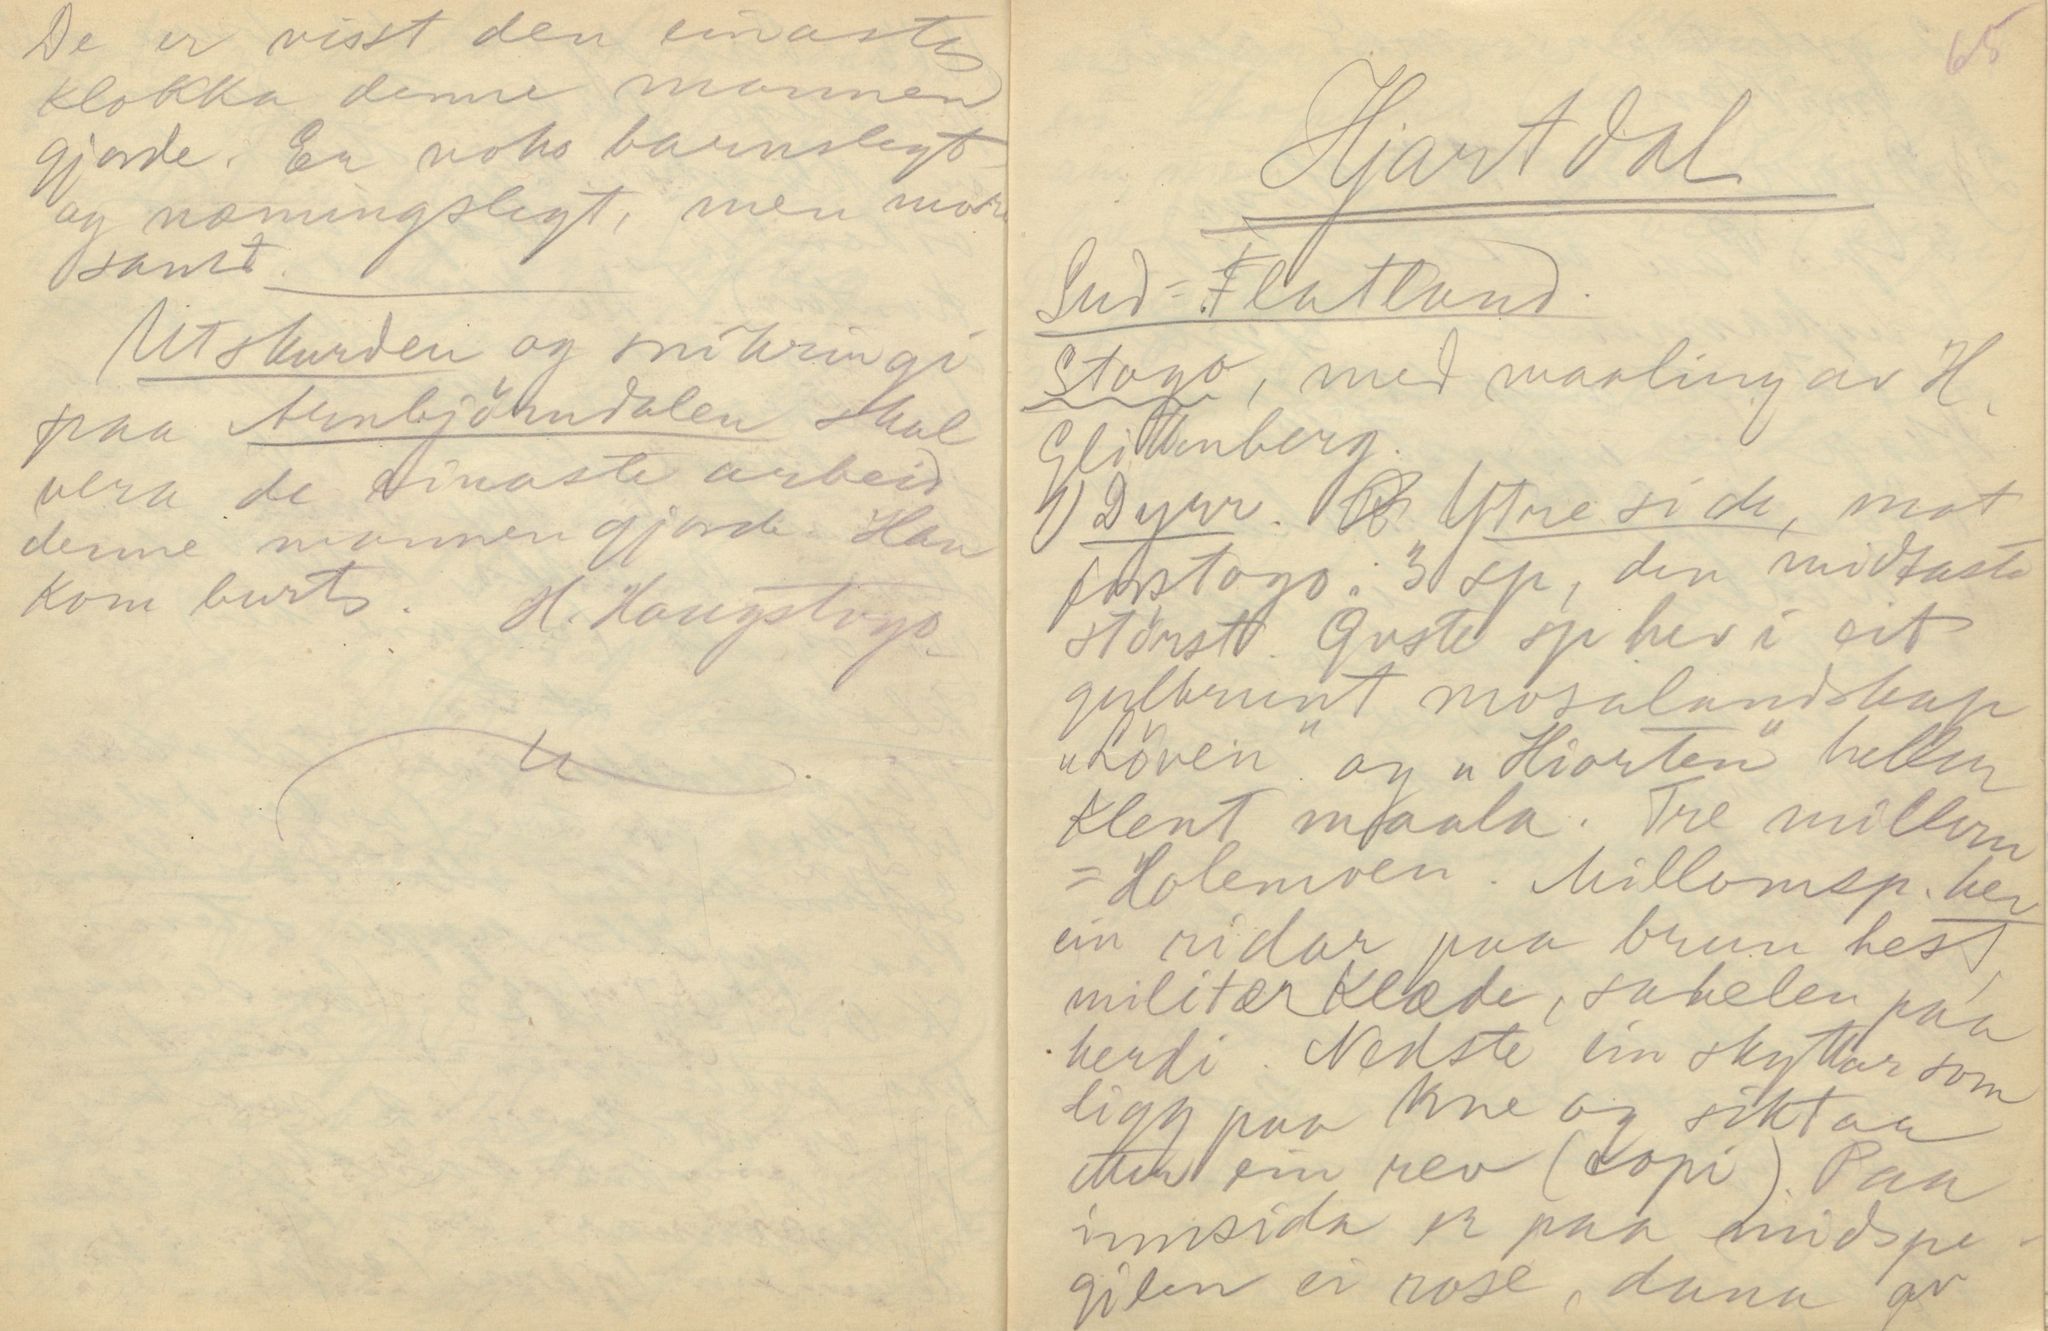 De er visst den einaste
klokka denne mannen
gjorde. Er noko barnslegt
og næmingslegt, men moro
samt.
Utskurden og snikringi
paa Arnbjörndalen skal
vera de einaste arbeid
denne mannen gjorde. Han
kom burt.
H. Haugstogo.
65
Hjartdal
Sud-Flatland.
Stogo, med maaling av H.
Glittenberg.
1) Dyrr. Ytre side, mot
forstogo: 3 sp, den midtaste
störst. Övste sp hev i eit
gulbrunt mosalandskap
"Löven" og "Hiorten" heller
klent maala. Tre millom
= Holemoen. Millomsp. hev
ein ridar paa brun hest,
militærklæde, sabelen paa
herdi. Nedste ein skyttar som
ligg paa kne og siktar
etter ein rev (Kopi). Paa
innsida er paa midspe-
gilen ei rose, dana av